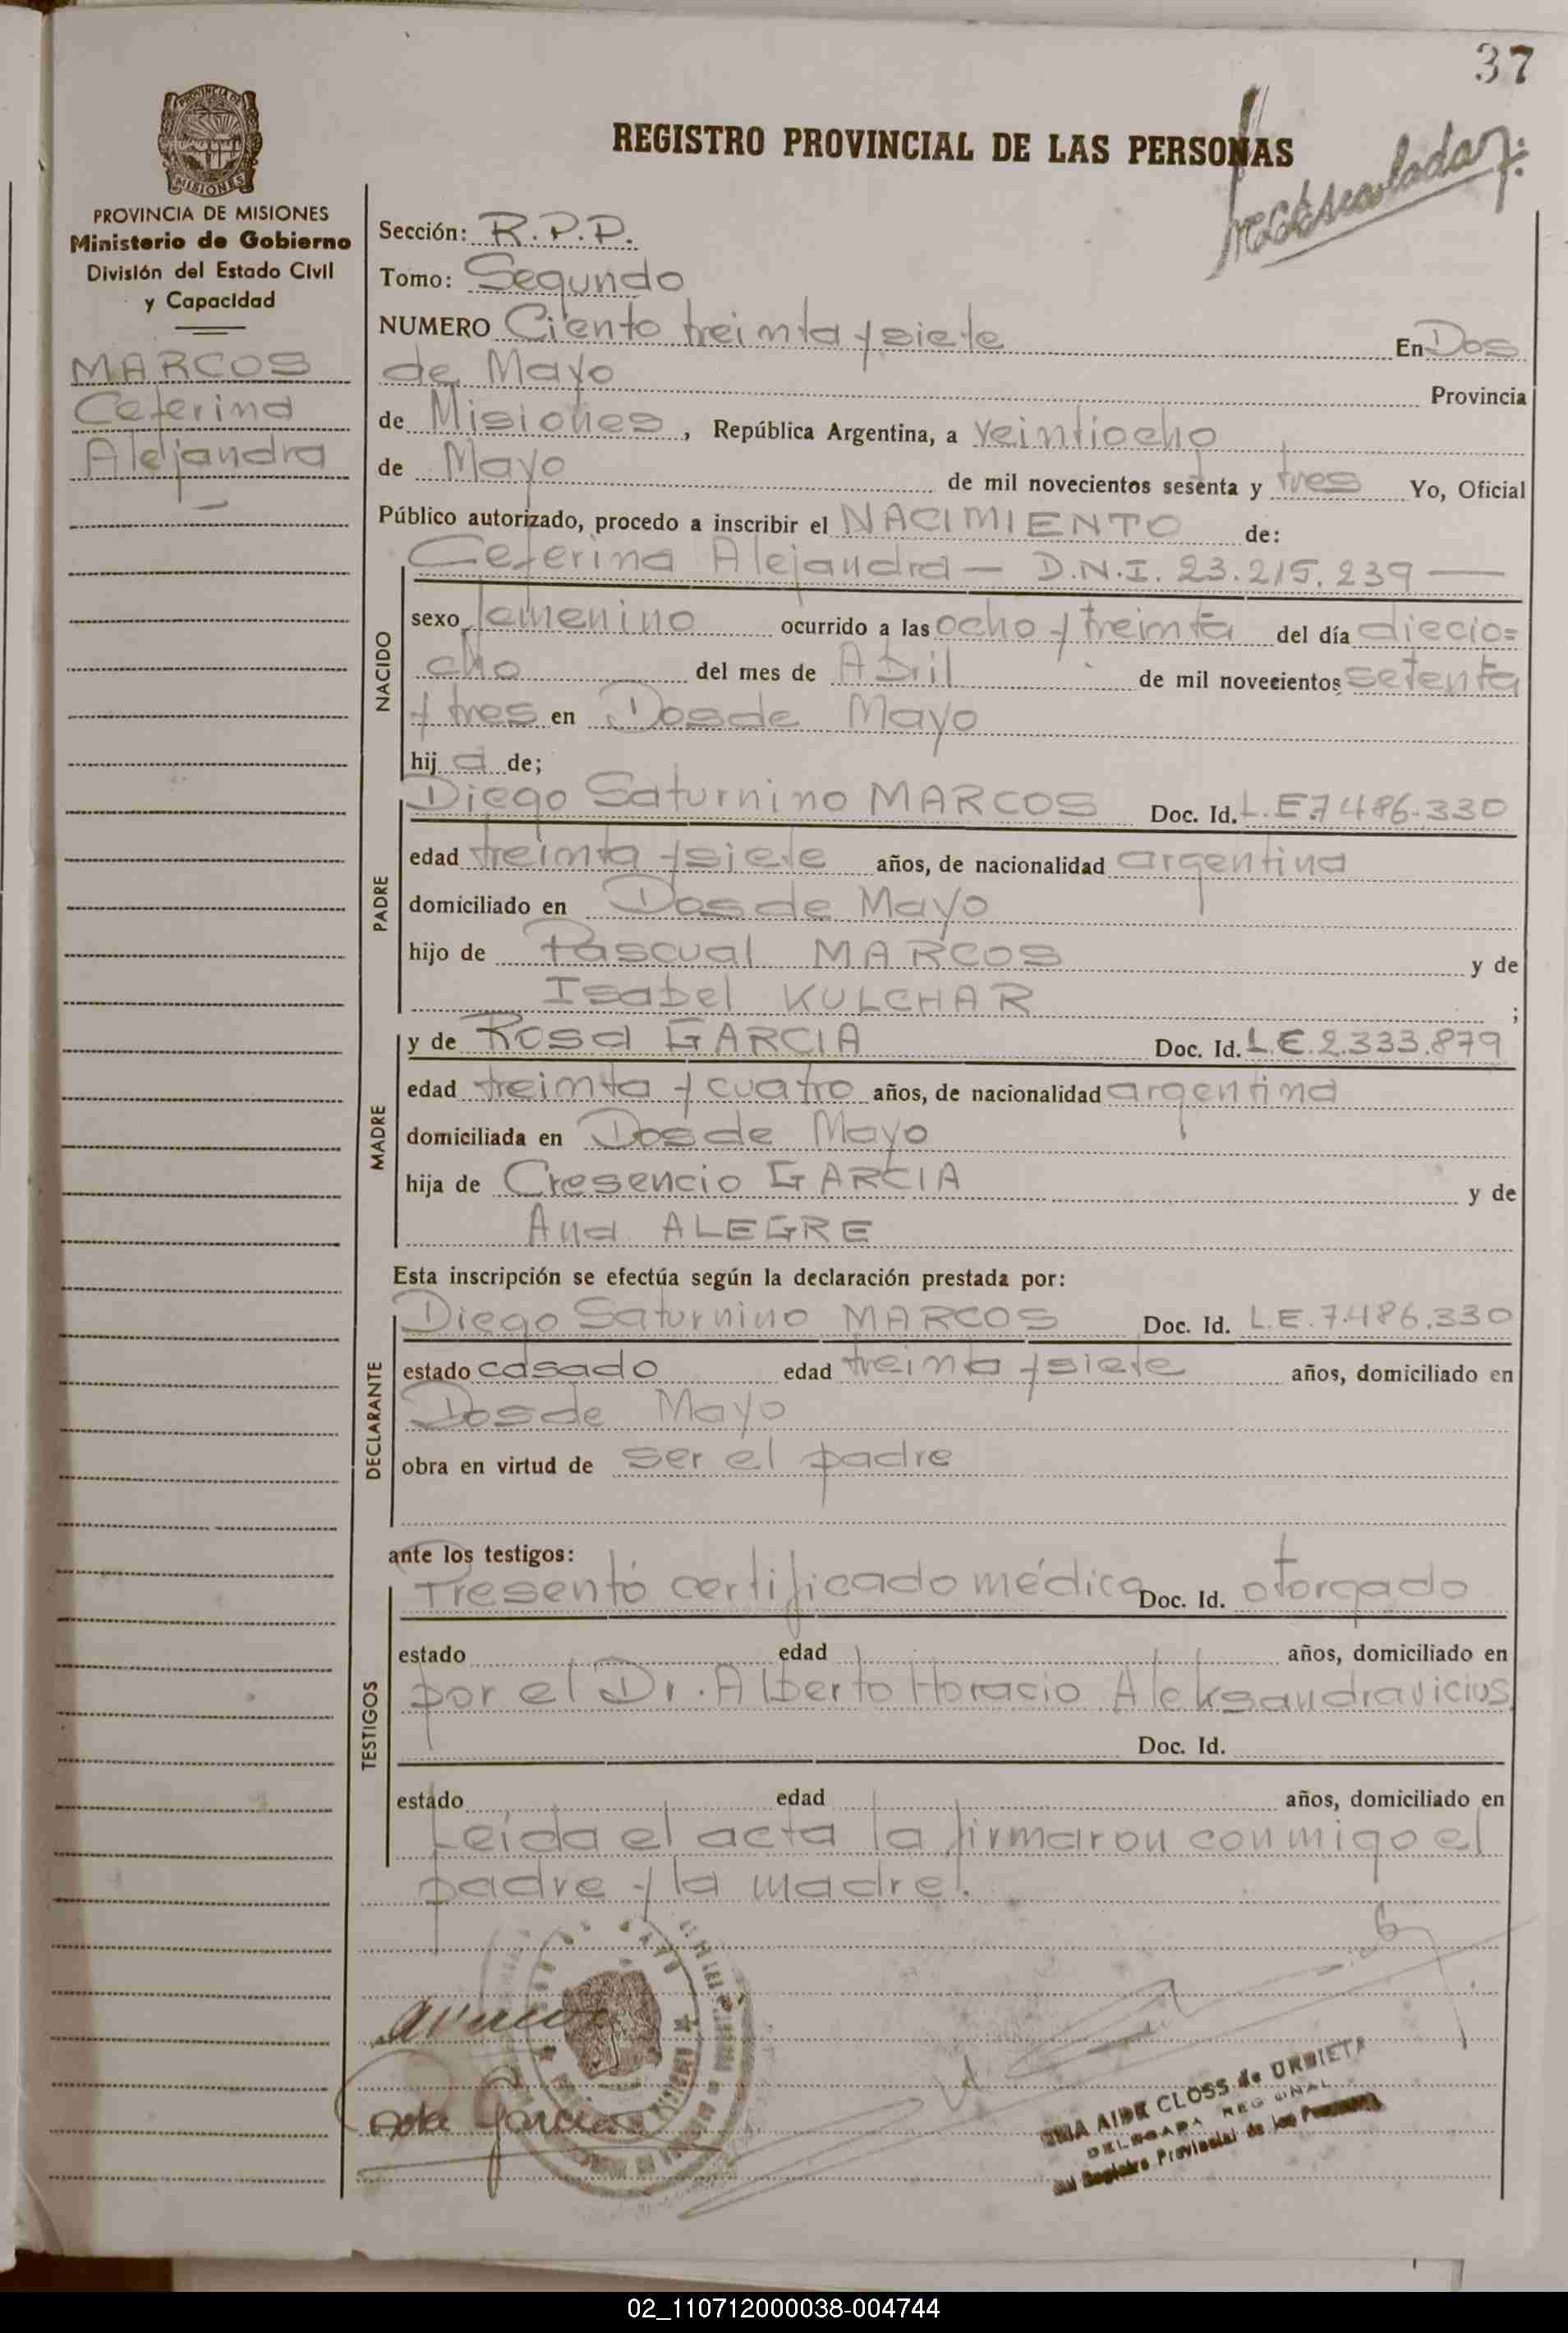 37
REGISTRO PROVINCIAL DE LAS PERSONAS
PROVINCIA DE MISIONES
Ministerio de Gobierno
División del Estado Civil
y Capacidad
MARCOS
Ceferina
Alejandra
Sección: R.P.P.
Tomo: Segundo
NUMERO Ciento treinta y siete En Dos
de Mayo Provincia
de Misiones, República Argentina, a veintiocho
de Mayo de mil novecientos sesenta y tres Yo, Oficial
Público autorizado, procedo a inscribir el NACIMIENTO de:
Ceferina Alejandra — D.N.I. 23.215.239 —
NACIDO
sexo femenino ocurrido a las ocho y treinta del día diecio=
cho del mes de Abril de mil novecientos setenta
y tres en Dos de Mayo
hij a de;
PADRE
Diego Saturnino MARCOS Doc. Id. L.E.7486.330
edad treinta y siete años, de nacionalidad argentina
domiciliado en Dos de Mayo
hijo de Pascual MARCOS y de
Isabel KULCHAR ;
MADRE
y de Rosa GARCIA Doc. Id. L.E.2.333.879
edad treinta y cuatro años, de nacionalidad argentina
domiciliada en Dos de Mayo
hija de Cresencio GARCIA y de
Ana ALEGRE
Esta inscripción se efectúa según la declaración prestada por:
DECLARANTE
Diego Saturnino MARCOS Doc. Id. L.E.7.486.330
estado casado edad treinta y siete años, domiciliado en
Dos de Mayo
obra en virtud de ser el padre
ante los testigos:
TESTIGOS
Presentó certificado médico Doc. Id. otorgado
estado edad años, domiciliado en
por el Dr. Alberto Horacio Aleksandravicius
Doc. Id.
estado edad años, domiciliado en
Leída el acta la firmaron conmigo el
padre y la madre.
Garcia
AIDE CLOSS de URBIETA
DELEGADA REGIONAL
del Registro Provincial de las Personas
02_110712000038-004744